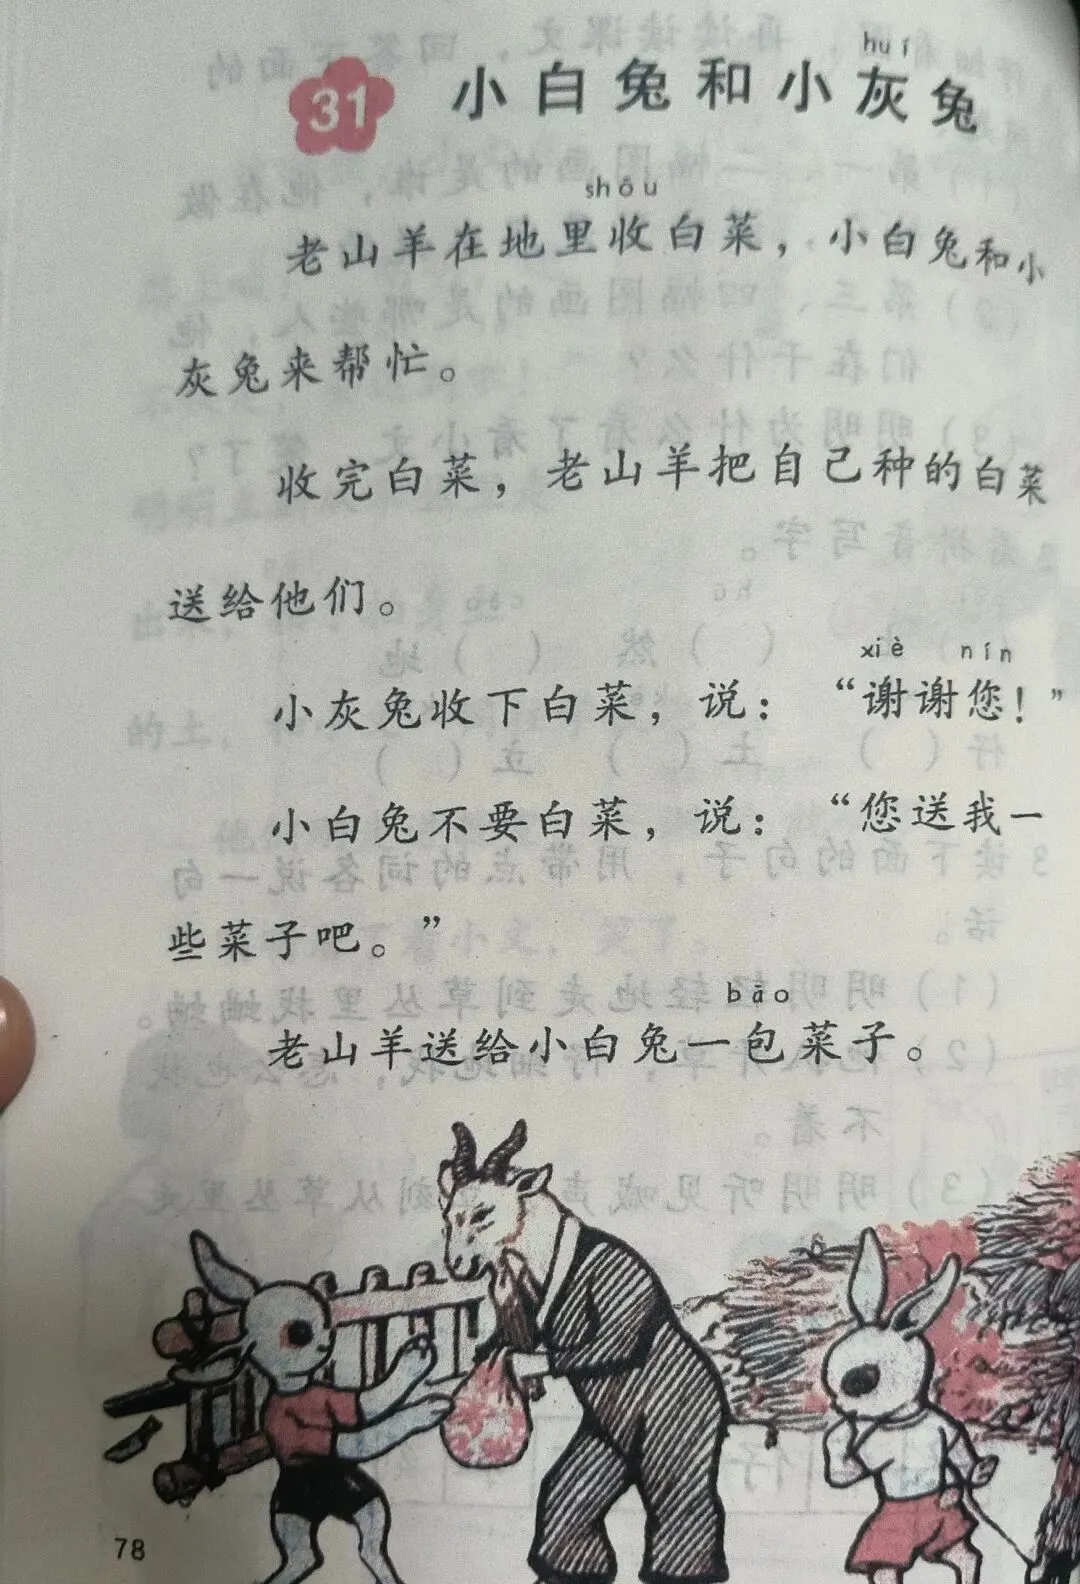 31 小白兔和小灰兔
huī
shōu
老山羊在地里收白菜，小白兔和小
灰兔来帮忙。
收完白菜，老山羊把自己种的白菜
送给他们。
xiè nín
小灰兔收下白菜，说：“谢谢您！”
小白兔不要白菜，说：“您送我一
些菜子吧。”
bāo
老山羊送给小白兔一包菜子。
78